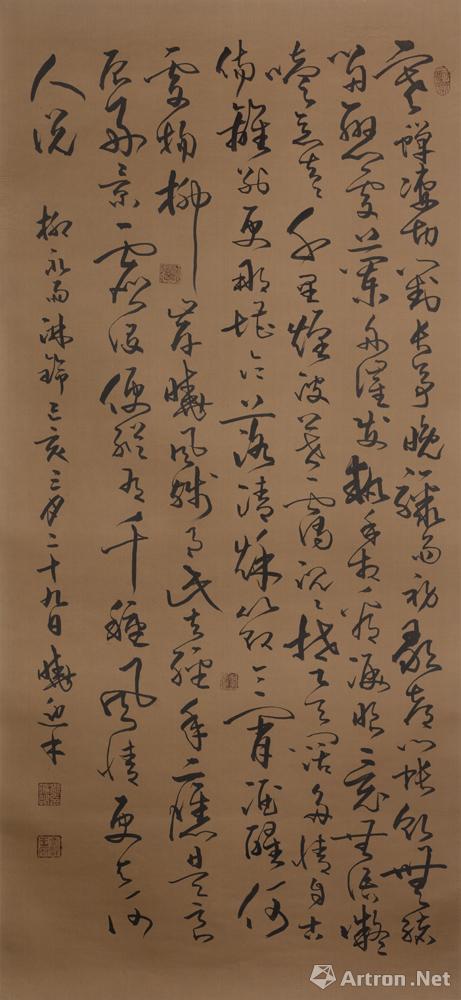 寒蟬凄切對長亭晚驟雨初歇都門帳飲無緒
留戀處蘭舟催發執手相看淚眼竟無語凝
噎念去去千里煙波暮靄沉沉楚天闊多情自古
傷離別更那堪冷落清秋節今宵酒醒何
處楊柳岸曉風殘月此去經年應是良
辰好景虛設便縱有千種風情更與何
人說 柳永雨淋鈴己亥三月二十九日曉
Artron.Net